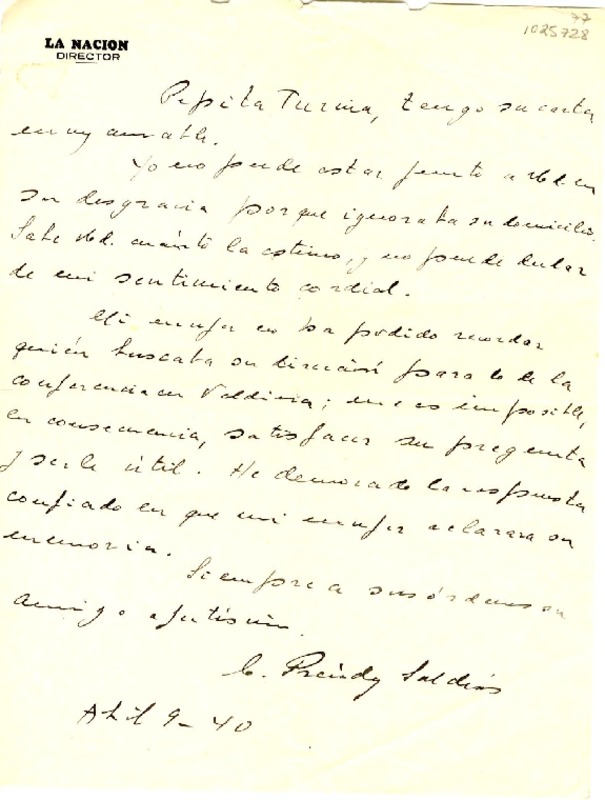 77
1025728
LA NACION
DIRECTOR
Pepita Turina, tengo su carta
muy amable.
Yo no pude estar junto a Ud. en
su desgracia porque ignoraba su domicilio.
Sabe Ud. cuánto la estimo, y no puede dudar
de mi sentimiento cordial.
Mi mujer no ha podido recordar
quién buscaba su dirección para lo de la
conferencia en Valdivia; me es imposible,
en consecuencia, satisfacer su pregunta
y serle útil. He demorado la respuesta
confiado en que mi mujer aclarara su
memoria.
Siempre a sus órdenes su
amigo afectísimo
C. Préndez Saldías
Abril 9-40